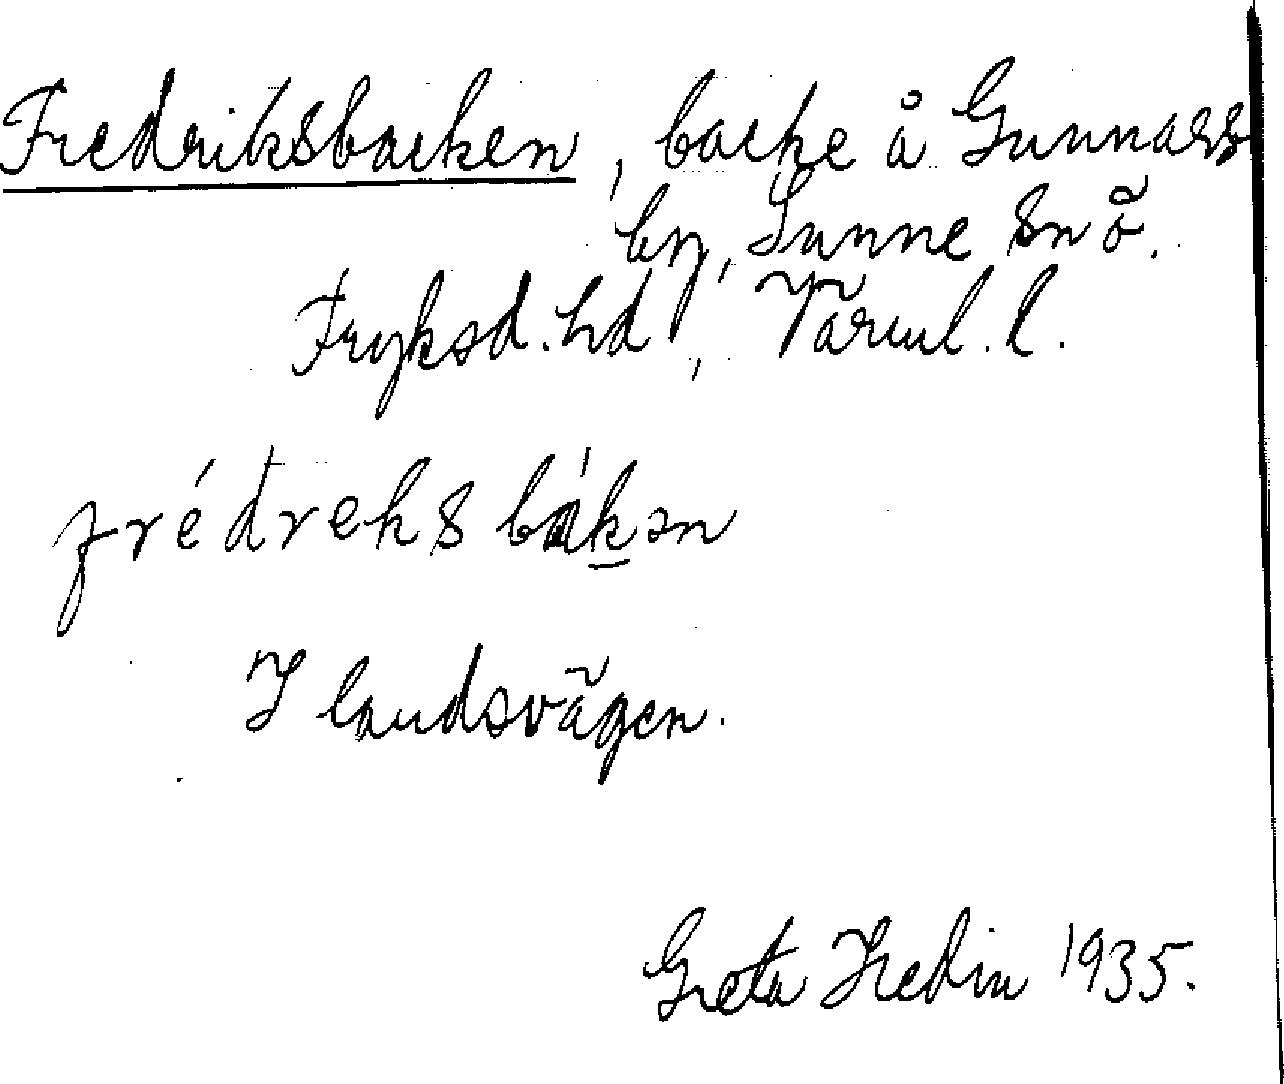 Fredriksbacken, backe å Gunnars
by, Sunne snö.
Fryksd. hd, Värml. l.
frédreks bákən
I landsvägen.
Greta Hedin 1935.